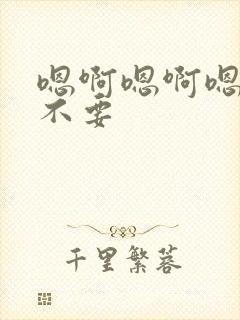 嗯啊嗯啊嗯
不要
千里繁蓉